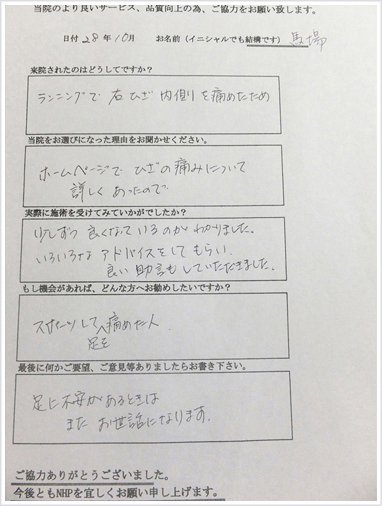 当院のより良いサービス、品質向上の為、ご協力をお願い致します。
日付 28年10月 お名前（イニシャルでも結構です） 馬場
来院されたのはどうしてですか？
ランニングで 右 ひざ 内側り を痛めたため
当院をお選びになった理由をお聞かせください。
ホームページで ひざの痛みについて
詳しく あったので
実際に施術を受けてみていかがでしたか？
少しずつ 良くなっているのが わかりました。
いろいろな アドバイスをしてもらい
良い 助言も していただきました。
もし機会があれば、どんな方へお勧めしたいですか？
スポーツして 足を 痛めた人
最後に何かご要望、ご意見等ありましたらお書き下さい。
足に不安があるときは
また お世話になります。
ご協力ありがとうございました。
今後ともNHPを宜しくお願い申し上げます。